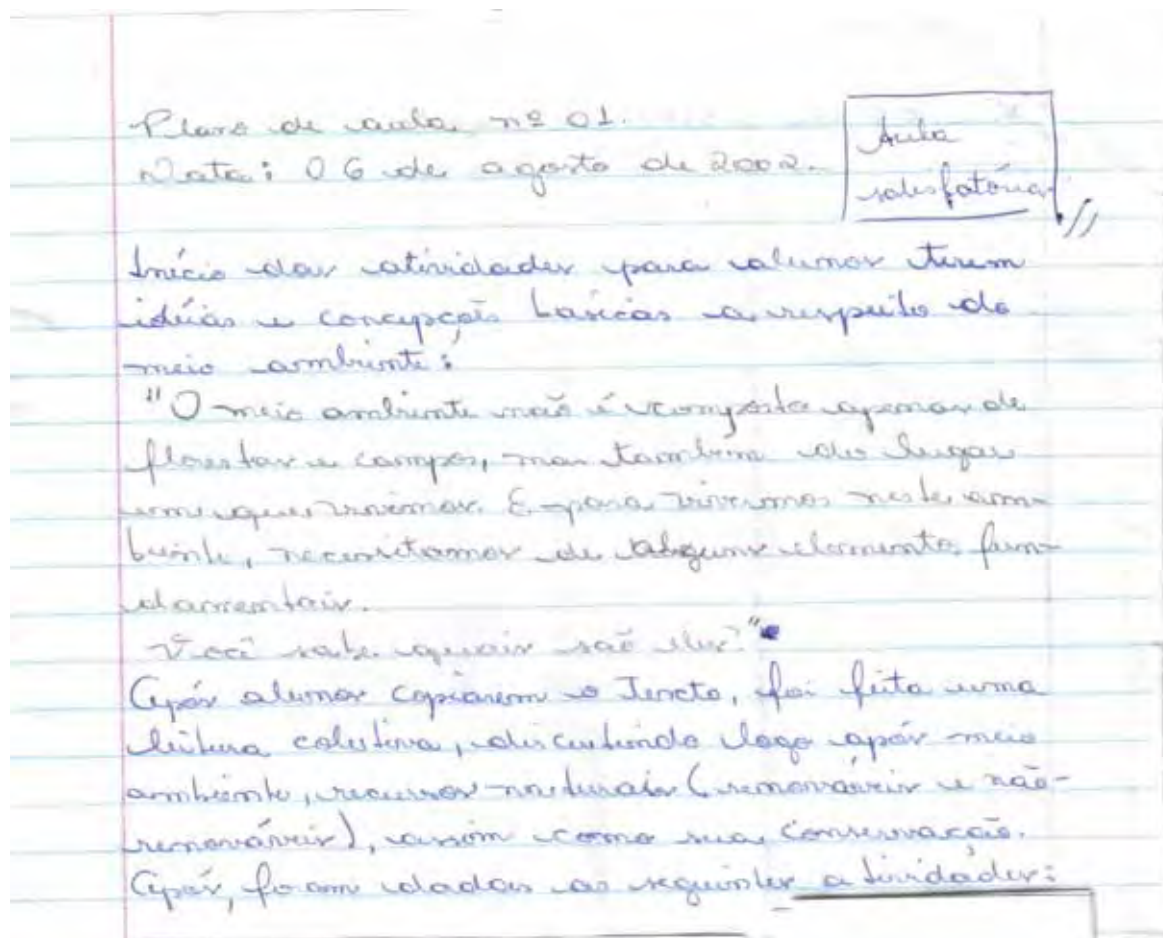 Plano de aula nº 01.
Data: 06 de agosto de 2002.
Aula
satisfatória
Início das atividades para alunos terem
idéias e concepções basícas a respeito do
meio ambiente:
"O meio ambiente não é composto apenas de
florestas e campos, mas também do lugar
em que vivemos. E para vivermos neste am-
biente, necessitamos de alguns elementos fun-
damentais.
Você sabe quais são eles?"
Após alunos copiarem o texto, foi feita uma
leitura coletiva, discutindo logo após meio
ambiente, recursos naturais (renováveis e não-
renováveis), assim como sua conservação.
Após, foram dadas as seguintes atividades: